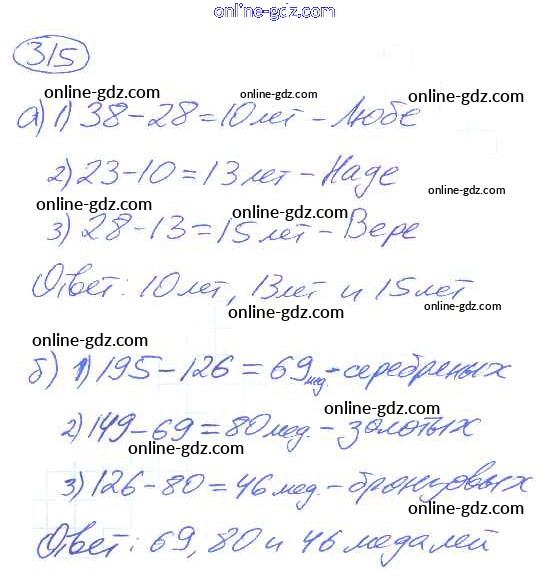 online-gdz.com
315
online-gdz.com online-gdz.com online-gdz.com
а) 1) 38-28=10лет - Любе
online-gdz.com
2) 23-10=13лет - Наде
online-gdz.com online-gdz.com
online-gdz.com
3) 28-13=15лет - Вере
online-gdz.com
Ответ: 10лет, 13лет и 15лет
online-gdz.com online-gdz.com
online-gdz.com
б) 1) 195-126=69мед-серебреных
online-gdz.com
2) 149-69=80мед. - золотых
online-gdz.com
online-gdz.com
3) 126-80=46мед - бронзовых
online-gdz.com online-gdz.com
Ответ: 69, 80 и 46 медалей